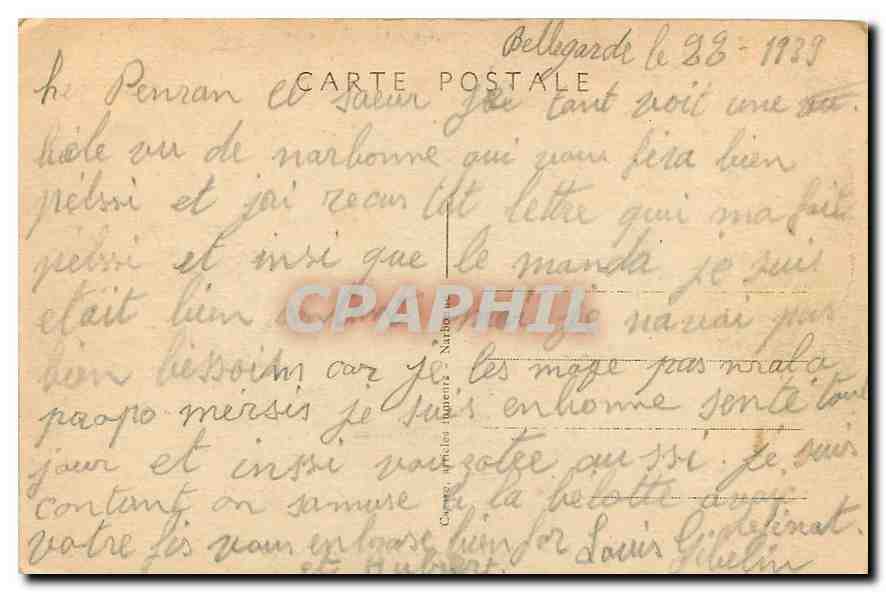 Bellegarde le 22 - 1939
CARTE POSTALE
Penran et saeur je tant voit une
bele vu de narbonne qui vous fira bien
pélssi et jai recus lettre qui ma fait
pélssi et insi que le manda je suis
etait bien je navai pas
bien bessoin car je les mage pas mal a
propo mersis je suis en bonne senté tout
jour et inssi vouzotre aussi. je suis
contant on samuse à la belotte avec
votre fis vous enbrase bien for Louis Gibelin
et Hubert.
Carme, articles fumeurs - Narbonne
CPAPHIL